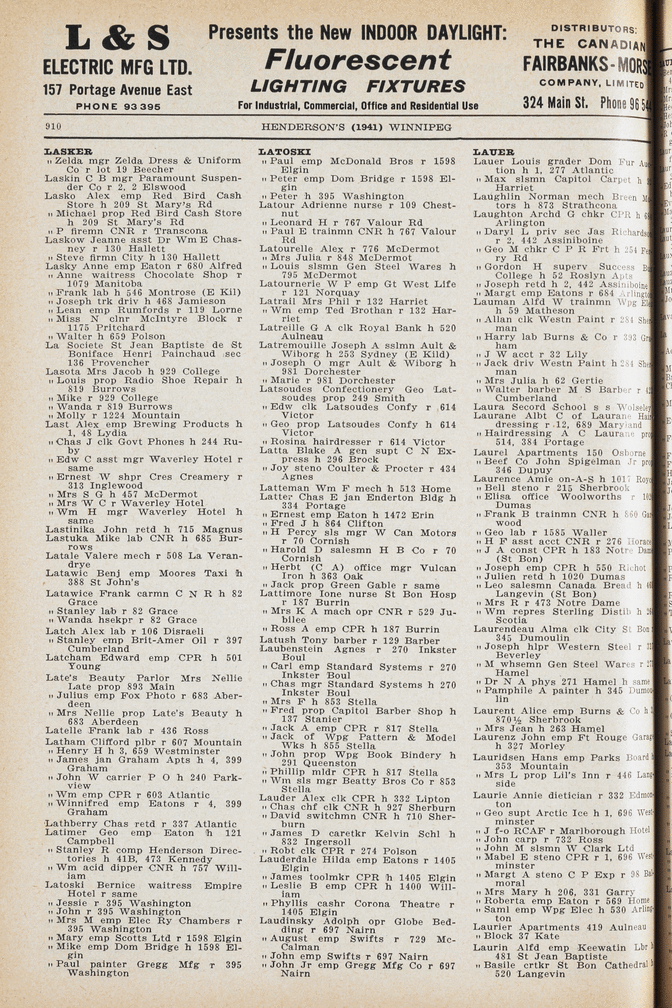 L & S
ELECTRIC MFG LTD.
157 Portage Avenue East
PHONE 93 395
Presents the New INDOOR DAYLIGHT:
Fluorescent
LIGHTING FIXTURES
For Industrial, Commercial, Office and Residential Use
DISTRIBUTORS:
THE CANADIAN
FAIRBANKS-MORSE
COMPANY, LIMITED
324 Main St. Phone 96 54
910
HENDERSON'S (1941) WINNIPEG
LASKER
" Zelda mgr Zelda Dress & Uniform
Co r lot 19 Beecher
Laskin C B mgr Paramount Suspen-
der Co r 2, 2 Elswood
Lasko Alex emp Red Bird Cash
Store h 209 St Mary's Rd
" Michael prop Red Bird Cash Store
h 209 St Mary's Rd
" P firemn CNR r Transcona
Laskow Jeanne asst Dr Wm E Chas-
ney r 130 Hallett
" Steve firmn City h 130 Hallett
Lasky Anne emp Eaton r 680 Alfred
" Anne waitress Chocolate Shop r
1079 Manitoba
" Frank lab h 546 Montrose (E Kil)
" Joseph trk driv h 468 Jamieson
" Lean emp Rumfords r 119 Lorne
" Miss N clnr McIntyre Block r
1175 Pritchard
" Walter h 659 Polson
La Societe St Jean Baptiste de St
Boniface Henri Painchaud sec
136 Provencher
Lasota Mrs Jacob h 929 College
" Louis prop Radio Shoe Repair h
819 Burrows
" Mike r 929 College
" Wanda r 819 Burrows
" Molly r 1224 Mountain
Last Alex emp Brewing Products h
1, 48 Lydia
" Chas J clk Govt Phones h 244 Ru-
by
" Edw C asst mgr Waverley Hotel r
same
" Ernest W shpr Cres Creamery r
313 Inglewood
" Mrs S G h 457 McDermot
" Mrs W C r Waverley Hotel
" Wm H mgr Waverley Hotel h
same
Lastinika John retd h 715 Magnus
Lastuka Mike lab CNR h 685 Bur-
rows
Latale Valere mech r 508 La Veran-
drye
Latawic Benj emp Moores Taxi h
388 St John's
Latawice Frank carmn C N R h 82
Grace
" Stanley lab r 82 Grace
" Wanda hsekpr r 82 Grace
Latch Alex lab r 106 Disraeli
" Stanley emp Brit-Amer Oil r 397
Cumberland
Latcham Edward emp CPR h 501
Young
Late's Beauty Parlor Mrs Nellie
Late prop 893 Main
" Julius emp Fox Photo r 683 Aber-
deen
" Mrs Nellie prop Late's Beauty h
683 Aberdeen
Latelle Frank lab r 436 Ross
Latham Clifford plbr r 607 Mountain
" Henry H h 3, 659 Westminster
" James jan Graham Apts h 4, 399
Graham
" John W carrier P O h 240 Park-
view
" Wm emp CPR r 603 Atlantic
" Winnifred emp Eatons r 4, 399
Graham
Lathberry Chas retd r 337 Atlantic
Latimer Geo emp Eaton h 121
Campbell
" Stanley R comp Henderson Direc-
tories h 41B, 473 Kennedy
" Wm acid dipper CNR h 757 Wil-
liam
Latoski Bernice waitress Empire
Hotel r same
" Jessie r 395 Washington
" John r 395 Washington
" Mrs M emp Elec Ry Chambers r
395 Washington
" Mary emp Scotts Ltd r 1598 Elgin
" Mike emp Dom Bridge h 1598 El-
gin
" Paul painter Gregg Mfg r 395
Washington
LATOSKI
" Paul emp McDonald Bros r 1598
Elgin
" Peter emp Dom Bridge r 1598 El-
gin
" Peter h 395 Washington
Latour Adrienne nurse r 109 Chest-
nut
" Leonard H r 767 Valour Rd
" Paul E trainmn CNR h 767 Valour
Rd
Latourelle Alex r 776 McDermot
" Mrs Julia r 848 McDermot
" Louis slsmn Gen Steel Wares h
795 McDermot
Latournerie W P emp Gt West Life
r 121 Norquay
Latrail Mrs Phil r 132 Harriet
" Wm emp Ted Brothan r 132 Har-
riet
Latreille G A clk Royal Bank h 520
Aulneau
Latremouille Joseph A sslmn Ault &
Wiborg h 253 Sydney (E Kild)
" Joseph O mgr Ault & Wiborg h
981 Dorchester
" Marie r 981 Dorchester
Latsoudes Confectionery Geo Lat-
soudes prop 249 Smith
" Edw clk Latsoudes Confy r 614
Victor
" Geo prop Latsoudes Confy h 614
Victor
" Rosina hairdresser r 614 Victor
Latta Blake A gen supt C N Ex-
press h 296 Brock
" Joy steno Coulter & Procter r 434
Agnes
Latteman Wm F mech h 513 Home
Latter Chas E jan Enderton Bldg h
334 Portage
" Ernest emp Eaton h 1472 Erin
" Fred J h 864 Clifton
" H Percy sls mgr W Can Motors
r 70 Cornish
" Harold D salesmn H B Co r 70
Cornish
" Herbt (C A) office mgr Vulcan
Iron h 363 Oak
" Jack prop Green Gable r same
Lattimore Ione nurse St Bon Hosp
r 187 Burrin
" Mrs K A mach opr CNR r 529 Ju-
bilee
" Ross A emp CPR h 187 Burrin
Latush Tony barber r 129 Barber
Laubenstein Agnes r 270 Inkster
Boul
" Carl emp Standard Systems r 270
Inkster Boul
" Chas mgr Standard Systems h 270
Inkster Boul
" Mrs F h 853 Stella
" Fred prop Capitol Barber Shop h
137 Stanier
" Jack A emp CPR r 817 Stella
" Jack of Wpg Pattern & Model
Wks h 855 Stella
" John prop Wpg Book Bindery h
291 Queenston
" Phillip mldr CPR h 817 Stella
" Wm sls mgr Beatty Bros Co r 853
Stella
Lauder Alex clk CPR h 332 Lipton
" Chas chf clk CNR h 927 Sherburn
" David switchmn CNR h 710 Sher-
burn
" James D caretkr Kelvin Schl h
832 Ingersoll
" Robt clk CPR r 274 Polson
Lauderdale Hilda emp Eatons r 1405
Elgin
" James toolmkr CPR h 1405 Elgin
" Leslie B emp CPR h 1400 Will-
iam
" Phyllis cashr Corona Theatre r
1405 Elgin
Laudinsky Adolph opr Globe Bed-
ding r 697 Nairn
" August emp Swifts r 729 Mc-
Calman
" John emp Swifts r 697 Nairn
" John Jr emp Gregg Mfg Co r 697
Nairn
LAUER
Lauer Louis grader Dom Fur Auc
tion h 1, 277 Atlantic
" Max slsmn Capitol Carpet h
Harriet
Laughlin Norman mech Breen M
tors h 873 Strathcona
Laughton Archd G chkr CPR h
Arlington
" Daryl L priv sec Jas Richardson
r 2, 442 Assiniboine
" Geo M chkr C P R Frt h 254 F
ry Rd
" Gordon H superv Success Bus
College h 52 Roslyn Apts
" Joseph retd h 2, 442 Assiniboine
" Margt emp Eatons r 684 Arlington
Lauman Alfd W trainmn Wpg El
h 59 Matheson
" Allan clk Westn Paint r 284 Sher
man
" Harry lab Burns & Co r 393 Gra
ham
" J W acct r 32 Lily
" Jack driv Westn Paint h 284 Sher
man
" Mrs Julia h 62 Gertie
" Walter barber M S Barber r
Cumberland
Laura Secord School s s Wolseley
Laurane Albt C of Laurane Hair
dressing r 12, 689 Maryland
" Hairdressing A C Laurane prop
514, 384 Portage
Laurel Apartments 150 Osborne
" Beef Co John Spigelman Jr prop
346 Dupuy
Laurence Amie on-A-S h 1017 Royal
" Bell steno r 215 Sherbrook
" Elisa office Woolworths r
Dumas
" Frank B trainmn CNR h 860
wood
" Geo lab r 1585 Waller
" H F asst acct CNR r 276 Horace
" J A const CPR h 183 Notre Dame
(St Bon)
" Joseph emp CPR h 550 Richot
" Julien retd h 1020 Dumas
" Leo salesmn Canada Bread h
Langevin (St Bon)
" Mrs R r 473 Notre Dame
" Wm repres Sterling Distib h
Scotia
Laurendeau Alma clk City St Bon
345 Dumoulin
" Joseph hlpr Western Steel r
Beverley
" M whsemn Gen Steel Wares r
Hamel
" Dr N A phys 271 Hamel h same
" Pamphile A painter h 345 Dumou
lin
Laurent Alice emp Burns & Co h
870½ Sherbrook
" Mrs Jean h 263 Hamel
Laurenz John emp Ft Rouge Garage
h 327 Morley
Lauridsen Hans emp Parks Board
353 Mountain
" Mrs L prop Lil's Inn r 446 Lang
side
Laurie Annie dietician r 332 Edmon
ton
" Geo supt Arctic Ice h 1, 696 West
minster
" J f-o RCAF r Marlborough Hotel
" John carp r 732 Ross
" John M slsmn W Clark Ltd
" Mabel E steno CPR r 1, 696 West
minster
" Margt A steno C P Exp r 98 Bal
moral
" Mrs Mary h 206, 331 Garry
" Roberta emp Eaton r 569 Home
" Saml emp Wpg Elec h 530 Arling
ton
Laurier Apartments 419 Aulneau
" Block 37 Kate
Laurin Alfd emp Keewatin Lbr
481 St Jean Baptiste
" Basile crtkr St Bon Cathedral
520 Langevin